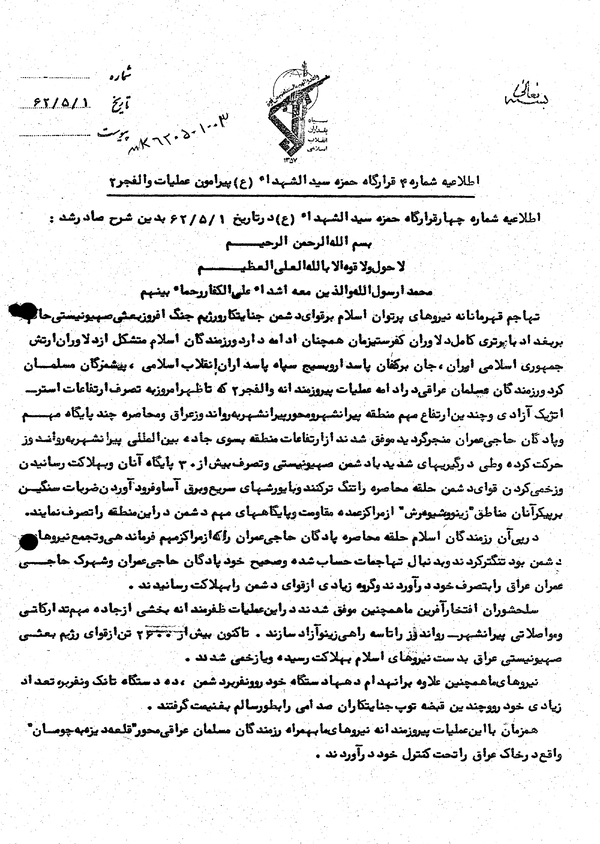 بسمه تعالی
شماره
تاریخ ۶۲/۵/۱
پیوست
MK ۶۲۰۵-۱۰۰۳
سپاه
پاسداران
انقلاب
اسلامی
۱۳۵۷
اطلاعیه شماره ۴ قرارگاه حمزه سید الشهداء (ع) پیرامون عملیات والفجر ۲
اطلاعیه شماره چهارقرارگاه حمزه سید الشهداء (ع) درتاریخ ۶۲/۵/۱ بدین شرح صادرشد :
بسم الله الرحمن الرحیم
لاحول ولاقوه الابالله العلی العظیم
محمد ارسول الله والذین معه اشداء علی الکفاررحماء بینهم
تهاجم قهرمانانه نیروهای پرتوان اسلام برقوای دشمن جنایتکارورژیم جنگ افروزبعثی صهیونیستی حاکم
بربغداد بابرتری کامل دلاوران کفرستیزمان همچنان ادامه داردورزمندگان اسلام متشکل ازدلاوران ارتش
جمهوری اسلامی ایران، جان برکفان پاسداروبسیج سپاه پاسداران انقلاب اسلامی ، پیشمرگان مسلمان
کردورزمندگان مسلمان عراقی درادامه عملیات پیروزمندانه والفجر۲ که تاظهرامروزبه تصرف ارتفاعات استر
اتژیک آزادی وچندین ارتفاع مهم منطقه پیرانشهرومحورپیرانشهربه رواندوزعراق ومحاصره چند پایگاه مهم
وپادگان حاجی عمران منجرگردید موفق شدند ازارتفاعات منطقه بسوی جاده بین المللی پیرانشهربه رواندوز
حرکت کرده وطی درگیریهای شدید بادشمن صهیونیستی وتصرف بیش از۳۰ پایگاه آنان وبهلاکت رسانیدن
وزخمی کردن قوای دشمن حلقه محاصره راتنگ ترکنند وبایورشهای سریع وبرق آساوفرودآوردن ضربات سنگین
برپیکرآنان مناطق "زینووشیوه رش" ازمراکزعمده مقاومت وپایگاههای مهم دشمن دراین منطقه راتصرف نمایند.
درپی آن رزمندگان اسلام حلقه محاصره پادگان حاجی عمران راکه ازمراکزمهم فرماندهی وتجمع نیروهای
دشمن بود تنگترکردند وبدنبال تهاجمات حساب شده وصحیح خود پادگان حاجی عمران وشهرک حاجی
عمران عراق رابتصرف خود درآوردند وگروه زیادی ازقوای دشمن رابهلاکت رسانیدند .
سلحشوران افتخارآفرین ماهمچنین موفق شدند دراین عملیات ظفرمندانه بخشی ازجاده مهم تدارکاتی
ومواصلاتی پیرانشهر رواندوز راتاسه راهی زینوآزاد سازند . تاکنون بیش از ۲۶۰۰ تن ازقوای رژیم بعثی
صهیونیستی عراق بدست نیروهای اسلام بهلاکت رسیده ویازخمی شدند .
نیروهای ماهمچنین علاوه برانهدام دهها دستگاه خودرو ونفربردشمن ، ده دستگاه تانک ونفربروتعداد
زیادی خودرووچندین قبضه توپ جنایتکاران صدامی رابطورسالم بغنیمت گرفتند .
همزمان بااین عملیات پیروزمندانه نیروهای مابهمراه رزمندگان مسلمان عراقی محور"قلعه دیزه به چومان"
واقع درخاک عراق راتحت کنترل خود درآوردند .